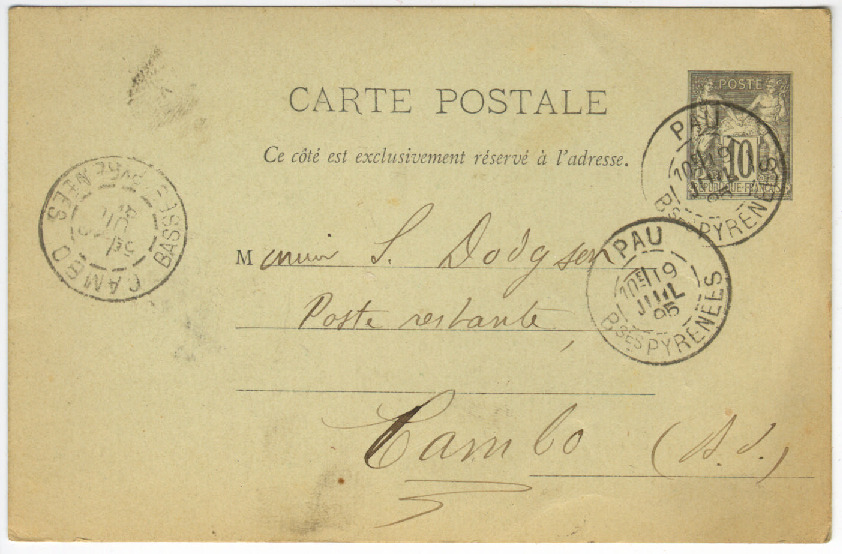 CARTE POSTALE
Ce côté est exclusivement réservé à l'adresse.
POSTE
10
REPUBLIQUE FRANÇAISE
PAU
10E 19
JUIL
95
BSES PYRENEES
PAU
10E 19
JUIL
95
BSES PYRENEES
CAMBO
BASSES PYRENEES
JUIL
95
Monsieur S. Dodgson
Poste restante,
Cambo